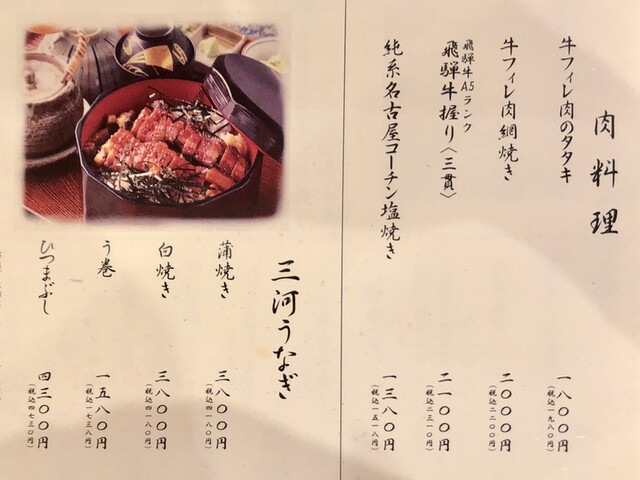 肉料理
牛フィレ肉のタタキ
一八〇〇円
(税込一九八〇円)
牛フィレ肉網焼き
二〇〇〇円
(税込二二〇〇円)
飛騨牛A5ランク
飛騨牛握り〈三貫〉
二一〇〇円
(税込二三一〇円)
純系名古屋コーチン塩焼き
一三八〇円
(税込一五一八円)
三河うなぎ
蒲焼き
三八〇〇円
(税込四一八〇円)
白焼き
三八〇〇円
(税込四一八〇円)
う巻
一五八〇円
(税込一七三八円)
ひつまぶし
四三〇〇円
(税込四七三〇円)